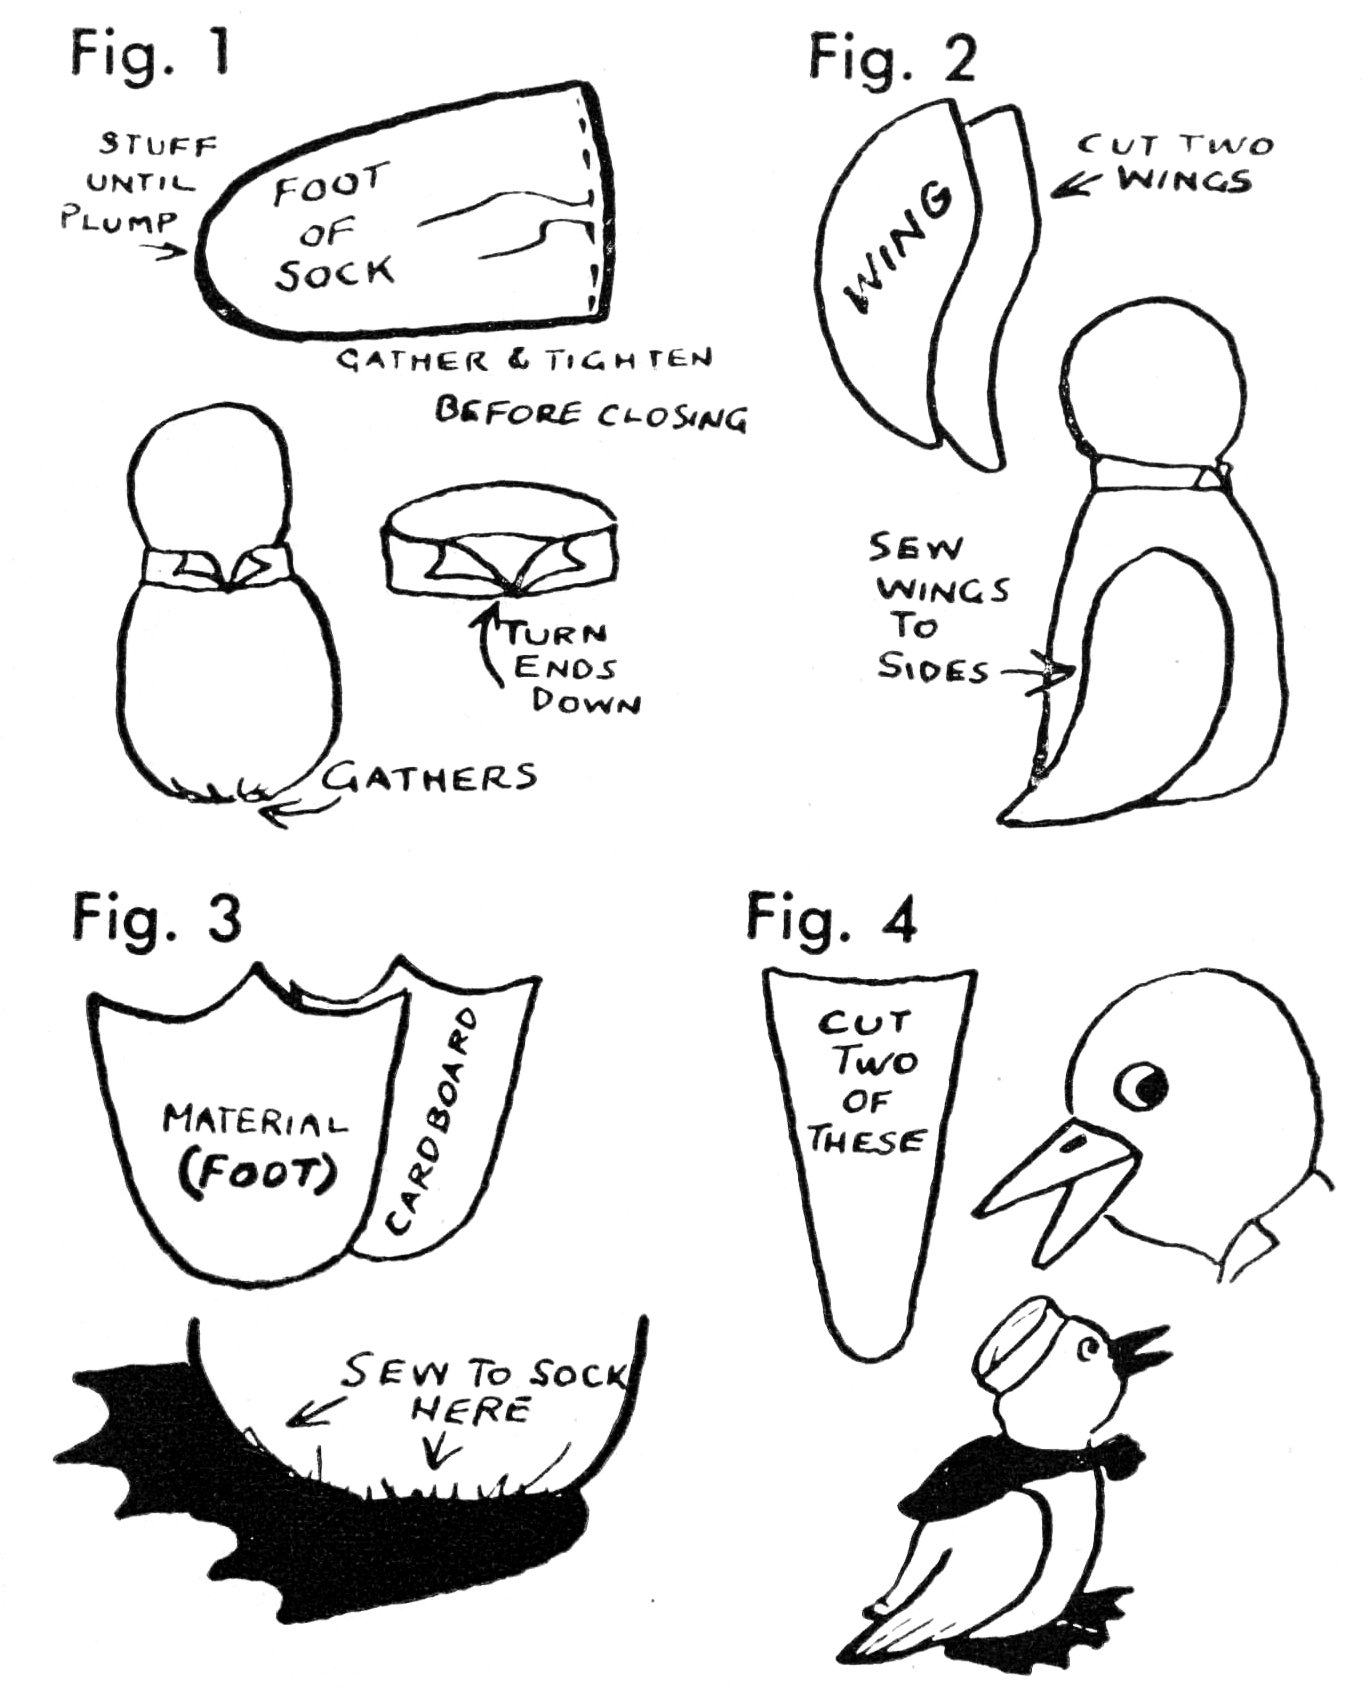 Fig. 1
STUFF
UNTIL
PLUMP
FOOT
OF
SOCK
GATHER & TIGHTEN
BEFORE CLOSING
TURN
ENDS
DOWN
GATHERS
Fig. 2
WING
CUT TWO
WINGS
SEW
WINGS
TO
SIDES
Fig. 3
MATERIAL
(FOOT)
CARDBOARD
SEW TO SOCK
HERE
Fig. 4
CUT
TWO
OF
THESE